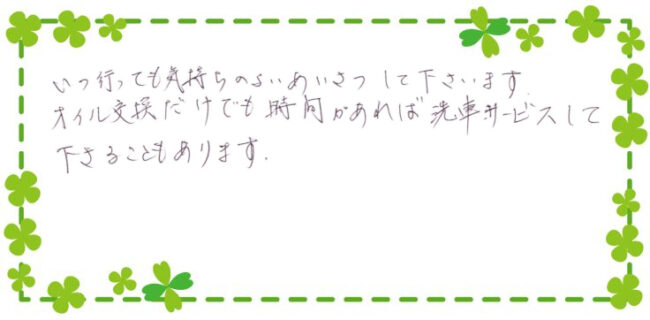 いつ行っても気持ちのよいあいさつして下さいます.
オイル交換だけでも時間があれば洗車サービスして
下さることもあります.